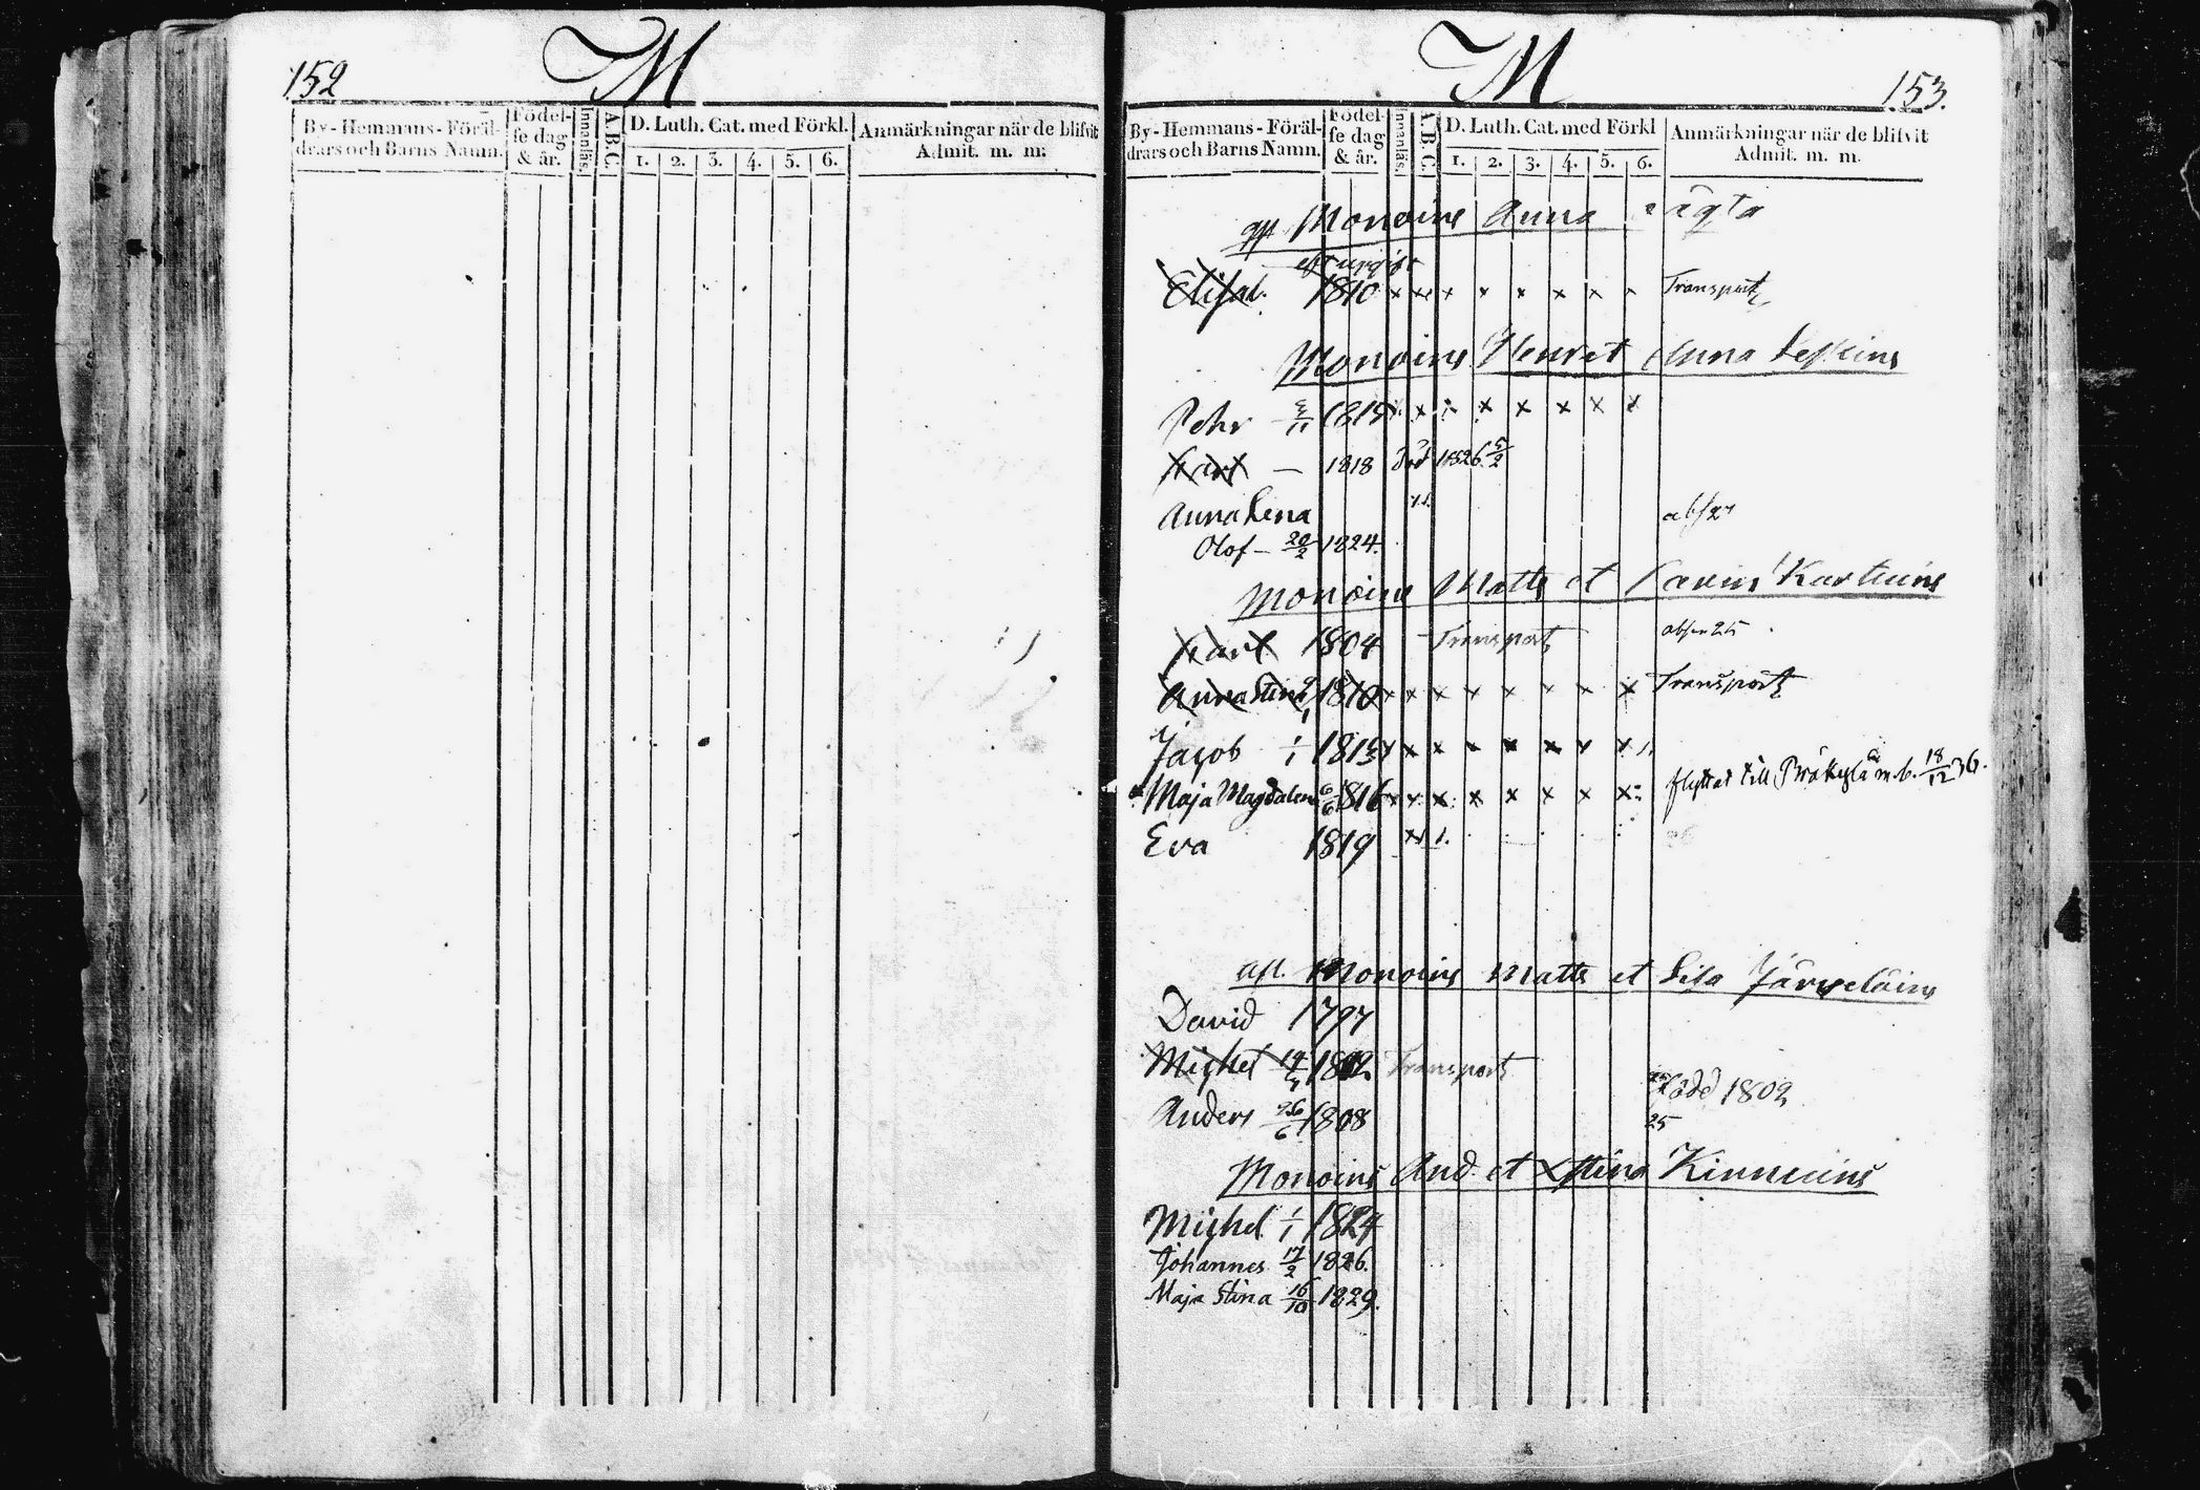 152
M
By-Hemmans-Föräl-
drars och Barns Namn.
Födel-
se dag
& år.
Innanläs.
A.B.C.
D. Luth. Cat. med Förkl.
1. 2. 3. 4. 5. 6.
Anmärkningar när de blifvit
Admit. m. m.
M
153.
By-Hemmans-Föräl-
drars och Barns Namn.
Födel-
se dag
& år.
Innanläs.
A.B.C.
D. Luth. Cat. med Förkl
1. 2. 3. 4. 5. 6.
Anmärkningar när de blifvit
Admit. m. m.
Monoins Anna
Elisab. 1810 x x x x x x x x Transport
Monoins Henr et Anna
Pehr 1815 x x x x x x x
1818 död 1826 5/2
Anna Lena
Olof - 20/2 1824.
Monoins Matts et
1804 Transport
Anna Stina 1810 x x x x x x x x Transport
Jacob 1/1 1813 x x x x x x x
Maja Magdalena 6/6 1816 x x x x x x x x flyttat till 18/12 36.
Eva 1819
Monoins Matts et Lisa Järveläins
David 1797
Michel 1802. Transport
född 1802
Anders 26/6 1808
25
Monoins And. et Stina Kinnuins
Michel 1/1 1824
Johannes 17/2 1826.
Maja Stina 16/10 1829.